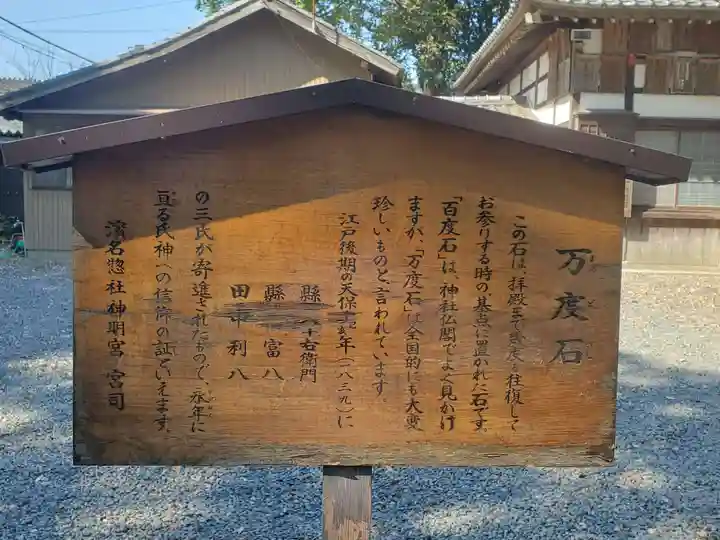 万度石
この石は、拝殿まで幾度も往復して
お参りする時の、基点に置かれた石です。
「百度石」は、神社仏閣でよく見かけ
ますが、「万度石」は全国的にも大変
珍しいものと、言われています。
江戸後期の天保十年(一八三九)に
縣 八十右衛門
縣 富八
田中利八
の三氏が寄進されたもので、永年に
亘る氏神への信仰の証といえます。
濱名惣社神明宮 宮司